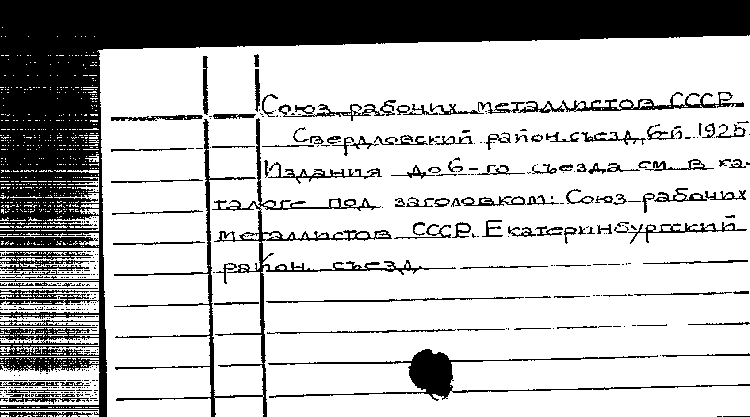 Союз рабочих металлистов СССР.
Свердловский район. съезд, 6-й. 1925
Издания до 6-го съезда см. в ка-
талоге под заголовком: Союз рабочих
металлистов СССР. Екатеринбургский
район. съезд.